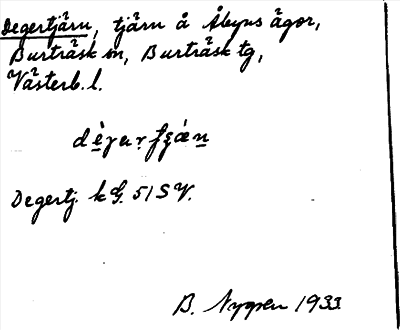 Degertjärn, tjärn å Åbyns ägor,
Burträsk sn, Burträsk tg,
Västerb. l.
Degertj. k G. 51 SV.
B. Nygren 1933